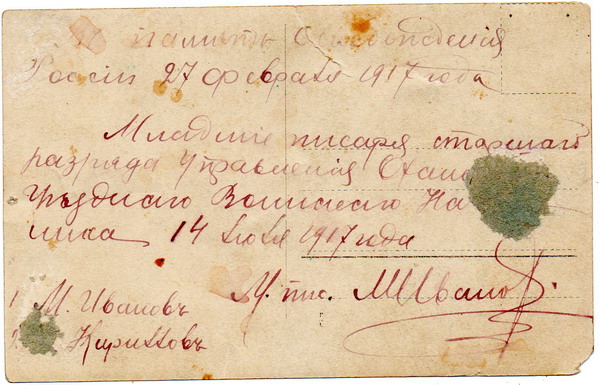 память Освобожденія
Россіи 27 февраля 1917 года
Младшіе писаря старшаго
разряда Управленія
Уѣзднаго Воинскаго На
ника 14 1917 года
М. пис. МИванов
1 М. Ивановъ
Кирилловъ